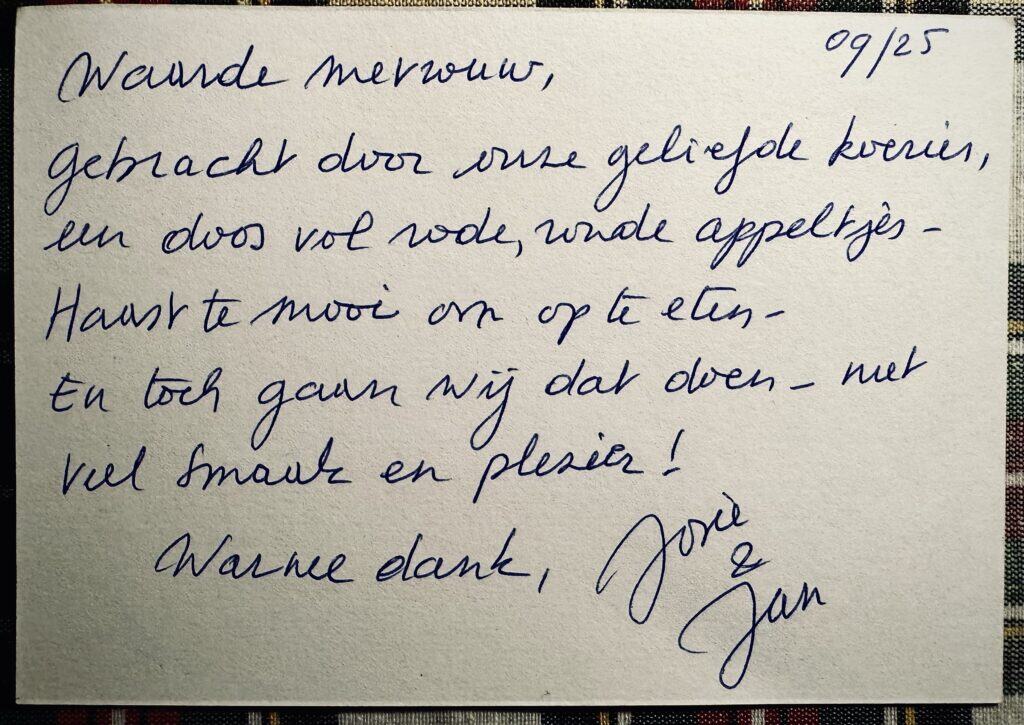 09/25
Waarde mevrouw,
Gebracht door onze geliefde koerier,
een doos vol rode, ronde appeltjes -
Haast te mooi om op te eten -
En toch gaan wij dat doen - met
veel smaak en plezier!
Warme dank, Josie
&
Jan